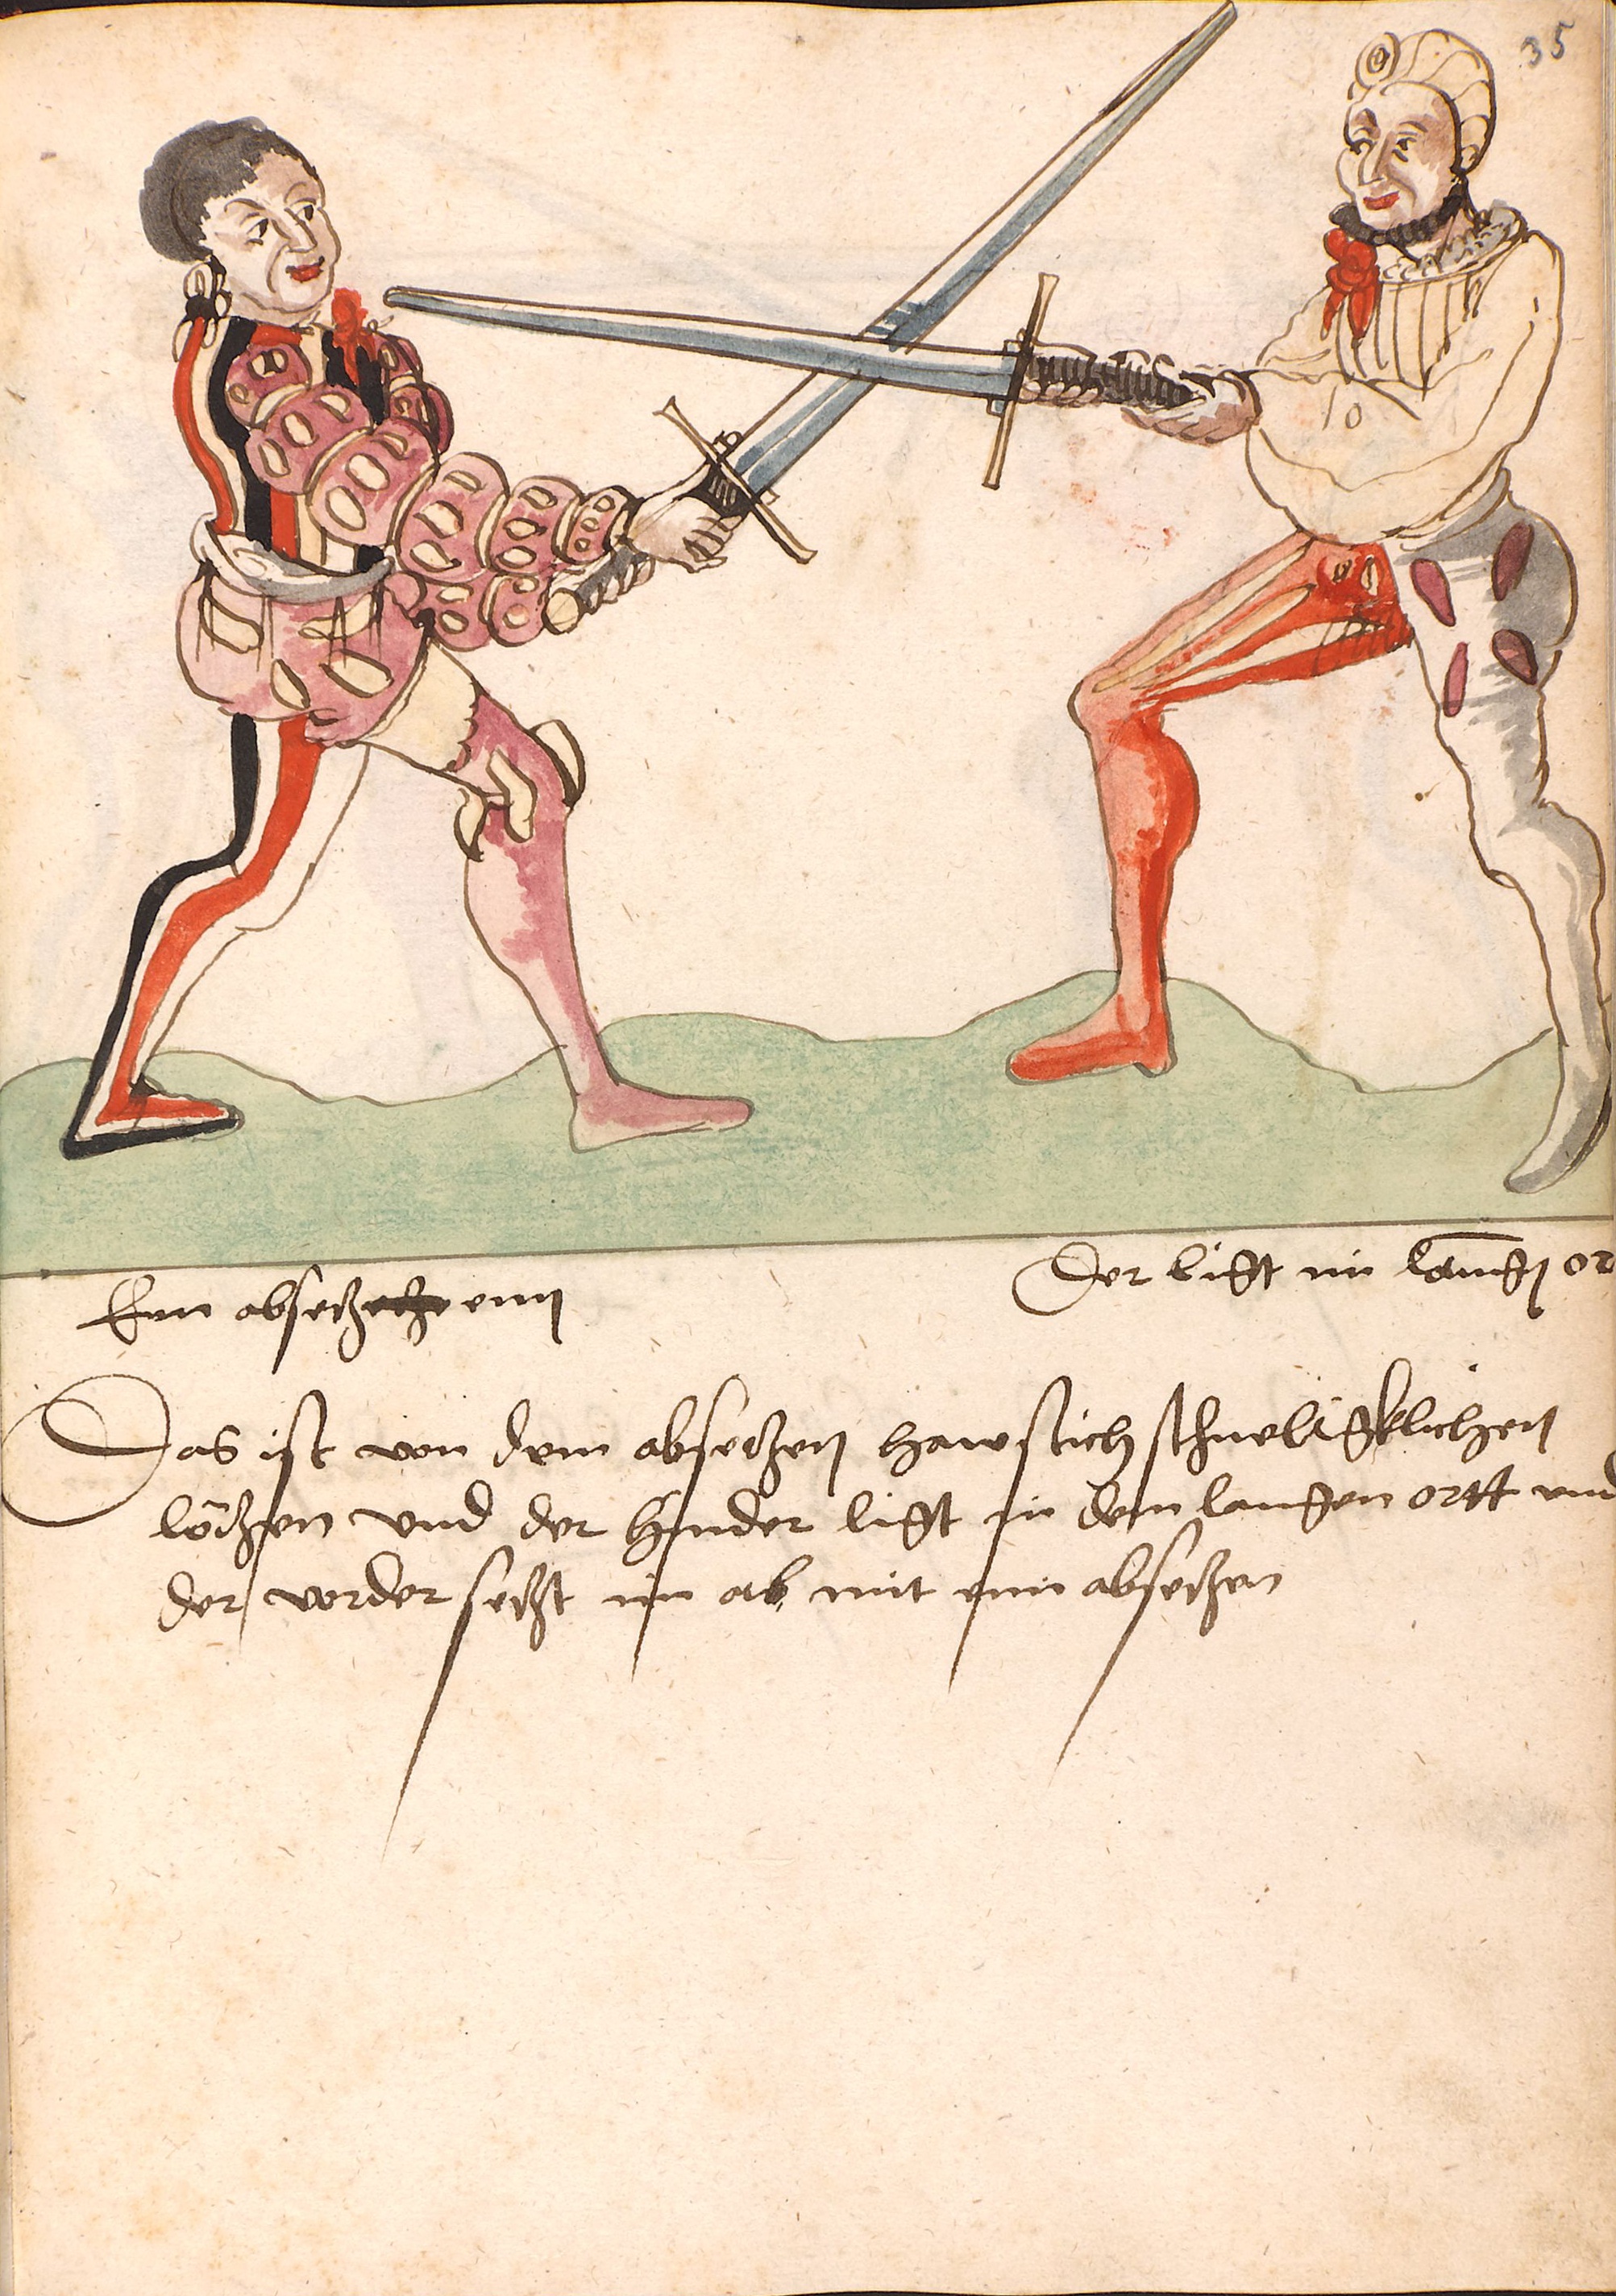 35
Der ligt im langen or
Ein absetzenn
Das ist von dem absetzen haw stich schneligklichen
lötzen und der hinder ligt in dem langen ortt und
der vorder setzt im ab mit eim absetzen